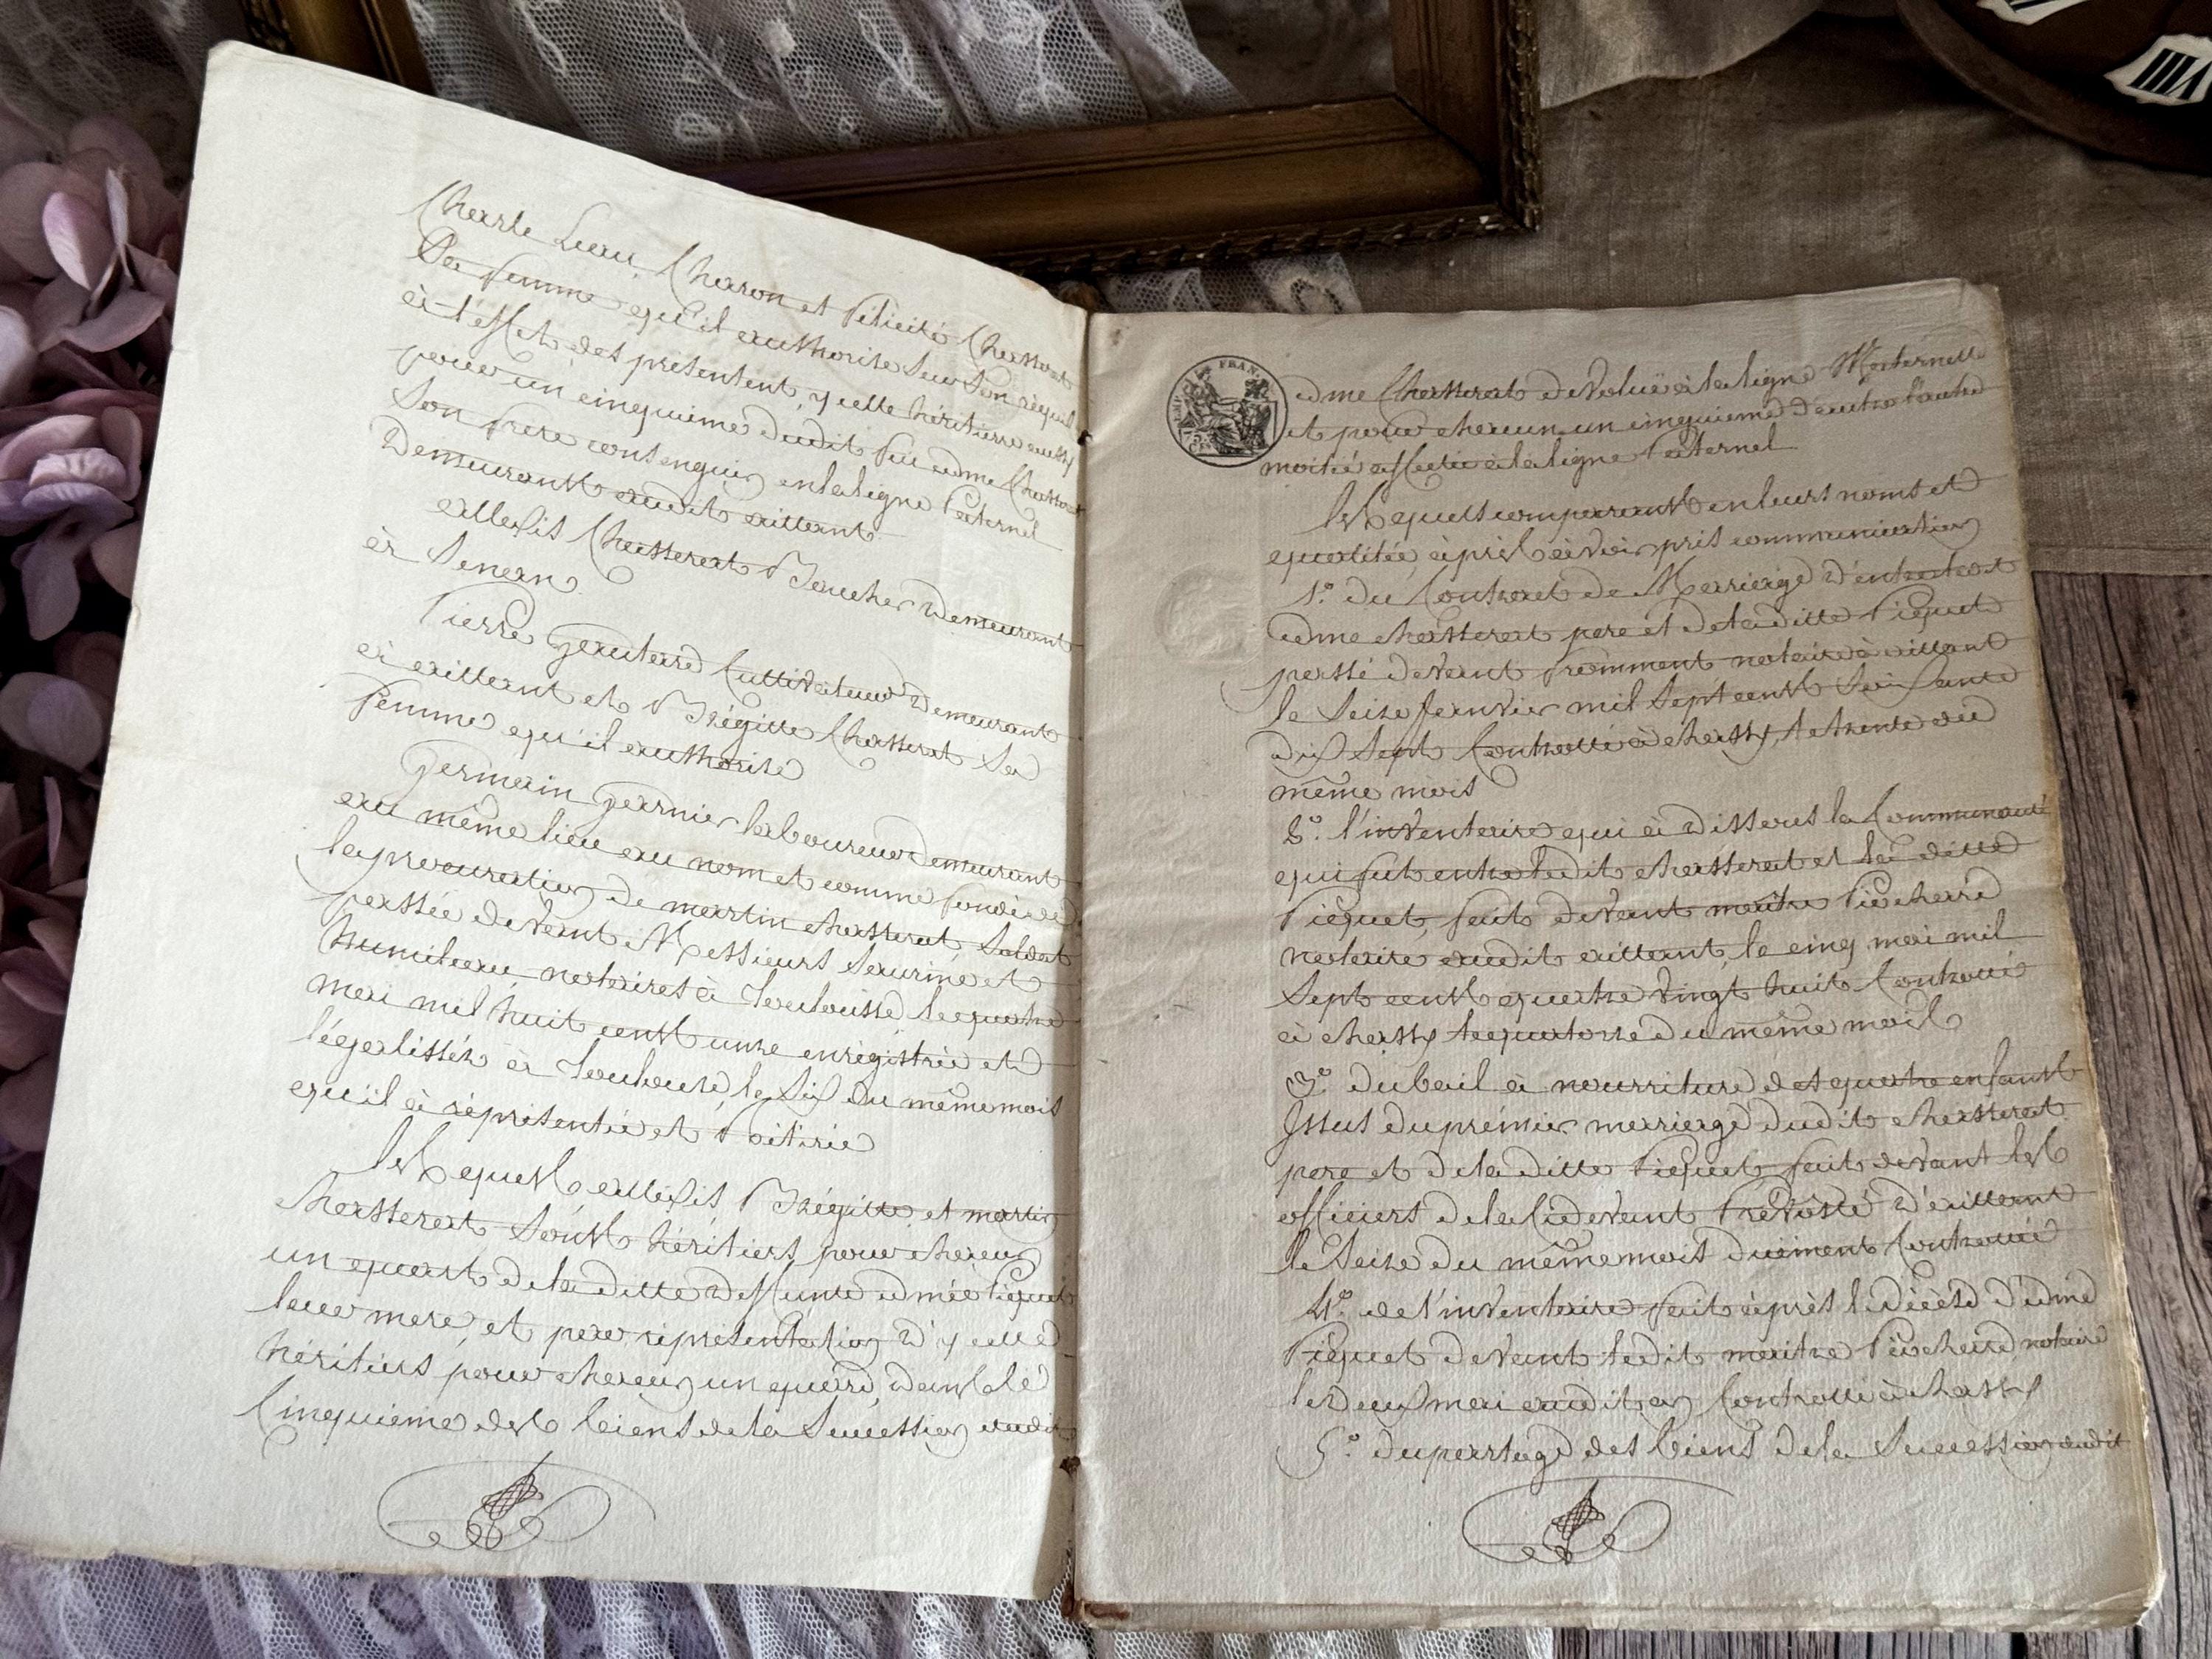 Charle Leau, Charon et Félicité Chasserat
Sa femme qu'il authorise Sur Son réquis
à l'effet des présentent, ycelle héritière aussy
pour un cinquième dudit feu edme Chasserat
Son frere consenguin en la ligne Paternel
Demeurant audit aillant
allexis Chasserat Bucher demeurant
à Senan
Pierre Gauterd Cultivateur Demeurant
à aillant et Brégitte Chasserat Sa
femme qu'il authorise
Germain Garnier laboureur Demeurant
au même lieu au nom et comme fondé de
la procuration de martin chasserat, Soldat
passée devant Messieurs Saurine et
notaires à Toulousse le quatre
mai mil huit cent unze enrégistrée et
légalissée à Toulouse le Six du même mois
qu'il à réprésentée et
Lesquels allexis Brégitte et martin
chasserat Sont héritiers pour chacun
un quart de la ditte deffunte edmée Piquet
leur mere, et par réprésentation d'ycelle
héritiers pour chacun un quard dans le
Cinquieme des biens de la Succession dudit
VIII
EMPIRE FRAN
75
edme Chasserat dévolüe à la ligne Maternelle
et pour chacun un cinquieme d'autre l'autre
moitié affectée à la ligne Paternel
Lesquels comparant en leurs noms et
qualitée, après avoir pris communication
1.° du Contrat de Marriage d'entre
edme chasserat pere et de la ditte Piquet
passé devant fromment notaire à aillant
le Seize Janvier mil Sept cent Soixante
dix Sept Controllé à chassy, le trente du
même mois
2.° l'inventaire qui à dissous la Communauté
qui fut entre ledit chasserat et la ditte
Piquet fait devant maitre Piochard
notaire audit aillant, le cinq mai mil
Sept cent quatre vingt huit Controllé
à chassy le quatorze du même mois
3.° du bail à nourriture des quatre enfant
Issus du prémier marriage dudit chasserat
pere et de la ditte Piquet fait devant les
officiers de la Cidevant Prévôsté d'aillant
le Seize du même mois duëment Controllé
4.° de l'inventaire fait après le décès d'edmé
Piquet devant ledit maitre Piochard notaire
le deux mai audit an Controllé à chassy
5.° du partage des biens de la Succession dudit